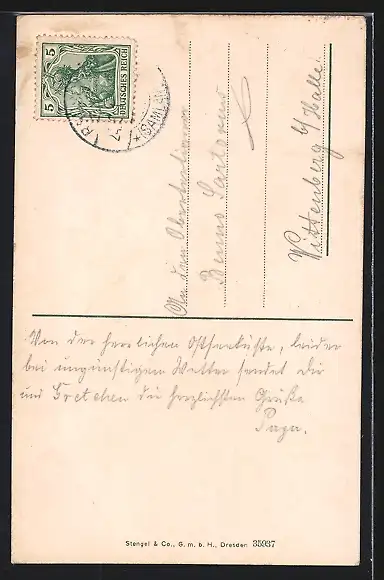 5
5
DEUTSCHES REICH
(SAMLAND)
An den Obertertianer
Benno Sartorius
Wittenberg b/Halle.
Von der herrlichen Ostseeküste, leider
bei ungünstigem Wetter sendet Dir
und Gretchen die herzlichsten Grüße
Papa.
Stengel & Co., G. m. b. H., Dresden 35937